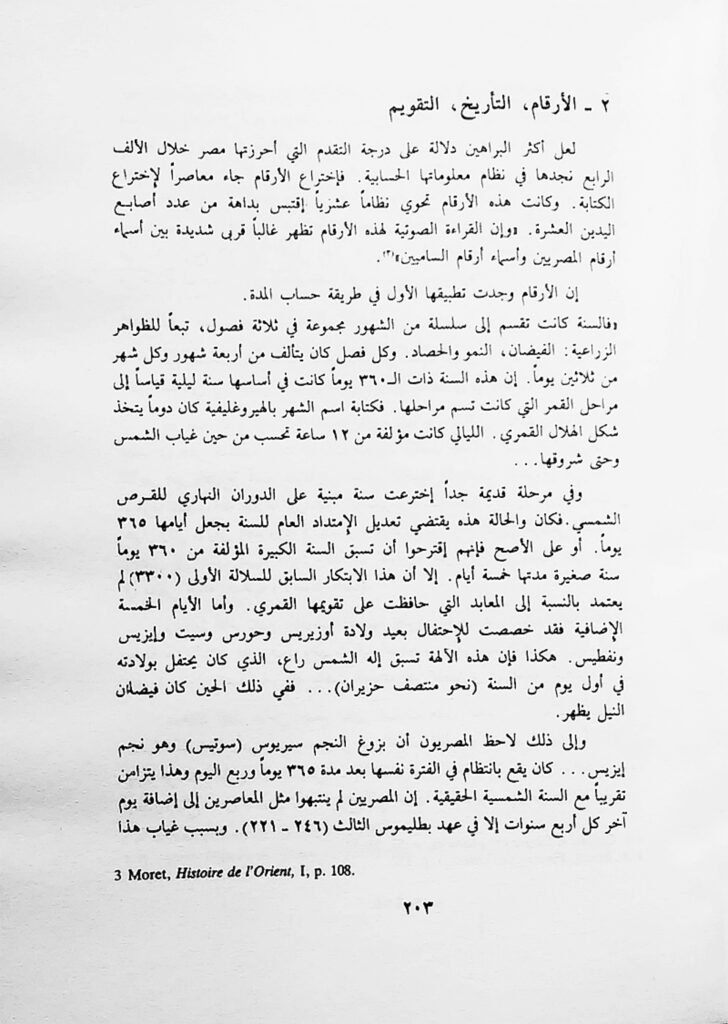 ٢ ـ الأرقام، التأريخ، التقويم
لعل أكثر البراهين دلالة على درجة التقدم التي أحرزتها مصر خلال الألف
الرابع نجدها في نظام معلوماتها الحسابية. فإختراع الأرقام جاء معاصراً لإختراع
الكتابة. وكانت هذه الأرقام تحوي نظاماً عشرياً إقتبس بداهة من عدد أصابع
اليدين العشرة. «وإن القراءة الصوتية لهذه الأرقام تظهر غالباً قربى شديدة بين أسماء
أرقام المصريين وأسماء أرقام الساميين»(٣).
إن الأرقام وجدت تطبيقها الأول في طريقة حساب المدة.
«فالسنة كانت تقسم إلى سلسلة من الشهور مجموعة في ثلاثة فصول، تبعاً للظواهر
الزراعية: الفيضان، النمو والحصاد. وكل فصل كان يتألف من أربعة شهور وكل شهر
من ثلاثين يوماً. إن هذه السنة ذات الـ٣٦٠ يوماً كانت في أساسها سنة ليلية قياساً إلى
مراحل القمر التي كانت تسم مراحلها. فكتابة اسم الشهر بالهيروغليفية كان دوماً يتخذ
شكل الهلال القمري. الليالي كانت مؤلفة من ١٢ ساعة تحسب من حين غياب الشمس
وحتى شروقها...
وفي مرحلة قديمة جداً إخترعت سنة مبنية على الدوران النهاري للقرص
الشمسي. فكان والحالة هذه يقتضي تعديل الإمتداد العام للسنة بجعل أيامها ٣٦٥
يوماً. أو على الأصح فإنهم إقترحوا أن تسبق السنة الكبيرة المؤلفة من ٣٦٠ يوماً
سنة صغيرة مدتها خمسة أيام. إلا أن هذا الابتكار السابق للسلالة الأولى (٣٣٠٠) لم
يعتمد بالنسبة إلى المعابد التي حافظت على تقويمها القمري. وأما الأيام الخمسة
الإضافية فقد خصصت للإحتفال بعيد ولادة أوزيريس وحورس وسيت وإيزيس
ونفطيس. هكذا فإن هذه الآلهة تسبق إله الشمس راع، الذي كان يحتفل بولادته
في أول يوم من السنة (نحو منتصف حزيران)... ففي ذلك الحين كان فيضان
النيل يظهر.
وإلى ذلك لاحظ المصريون أن بزوغ النجم سيريوس (سوتيس) وهو نجم
إيزيس... كان يقع بانتظام في الفترة نفسها بعد مدة ٣٦٥ يوماً وربع اليوم وهذا يتزامن
تقريباً مع السنة الشمسية الحقيقية. إن المصريين لم ينتبهوا مثل المعاصرين إلى إضافة يوم
آخر كل أربع سنوات إلا في عهد بطليموس الثالث (٢٤٦ ـ ٢٢١). وبسبب غياب هذا
3 Moret, Histoire de l'Orient, I, p. 108.
٢٠٣